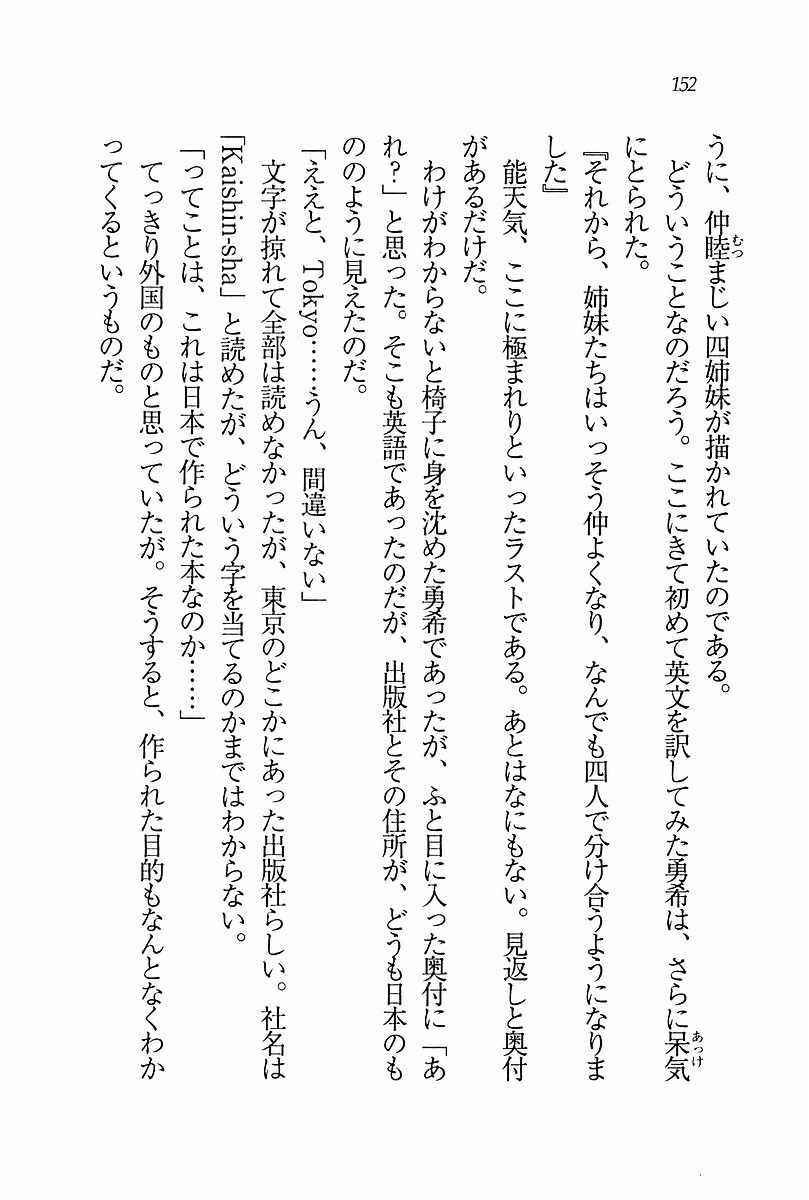 152
うに、仲睦まじい四姉妹が描かれていたのである。
　どういうことなのだろう。ここにきて初めて英文を訳してみた勇希は、さらに呆気
にとられた。
『それから、姉妹たちはいっそう仲よくなり、なんでも四人で分け合うようになりま
した』
　能天気、ここに極まれりといったラストである。あとはなにもない。見返しと奥付
があるだけだ。
　わけがわからないと椅子に身を沈めた勇希であったが、ふと目に入った奥付に「あ
れ？」と思った。そこも英語であったのだが、出版社とその住所が、どうも日本のも
ののように見えたのだ。
「ええと、Tokyo……うん、間違いない」
　文字が掠れて全部は読めなかったが、東京のどこかにあった出版社らしい。社名は
「Kaishin-sha」と読めたが、どういう字を当てるのかまではわからない。
「ってことは、これは日本で作られた本なのか……」
　てっきり外国のものと思っていたが。そうすると、作られた目的もなんとなくわか
ってくるというものだ。
むつ
あっけ